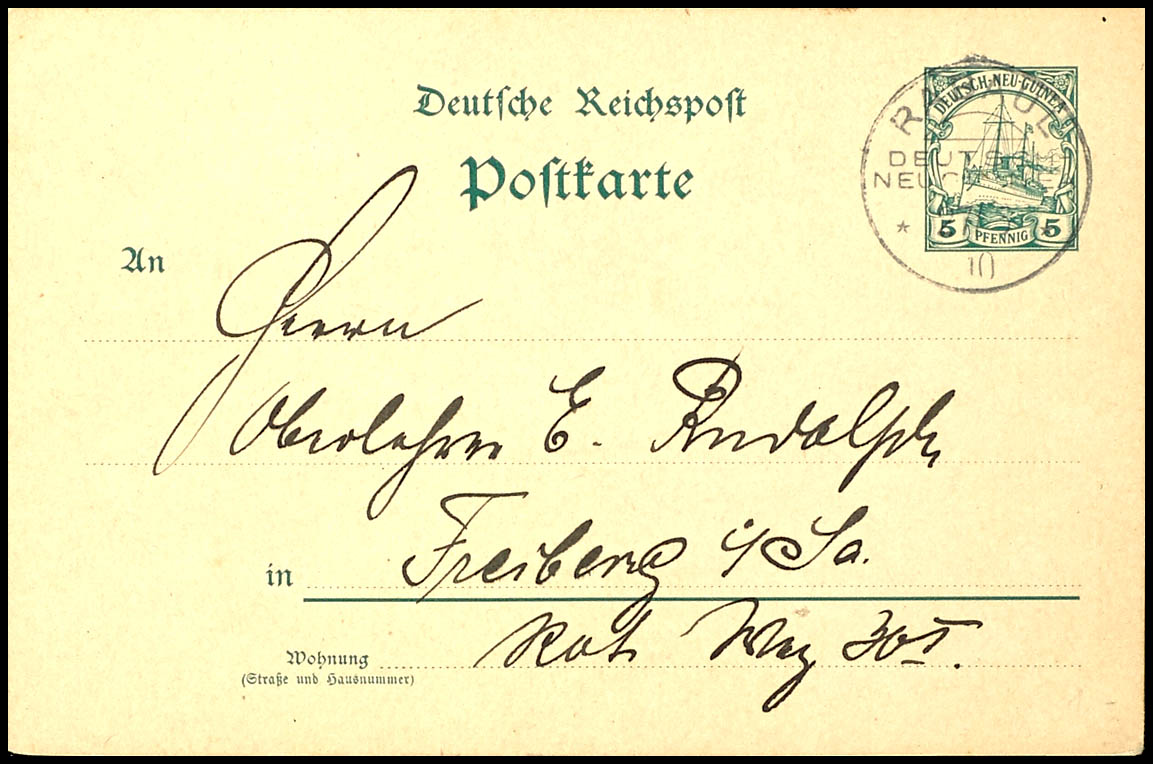 Deutsche Reichspost
Postkarte
DEUTSCH-NEU-GUINEA
5 PFENNIG 5
RABAUL
DEUTSCH
NEUGUINEA
*
10
An
Herrn
Oberlehrer E. Rudolph
in Freiberg i/Sa.
Wohnung Rot Weg 30 I.
(Straße und Hausnummer)